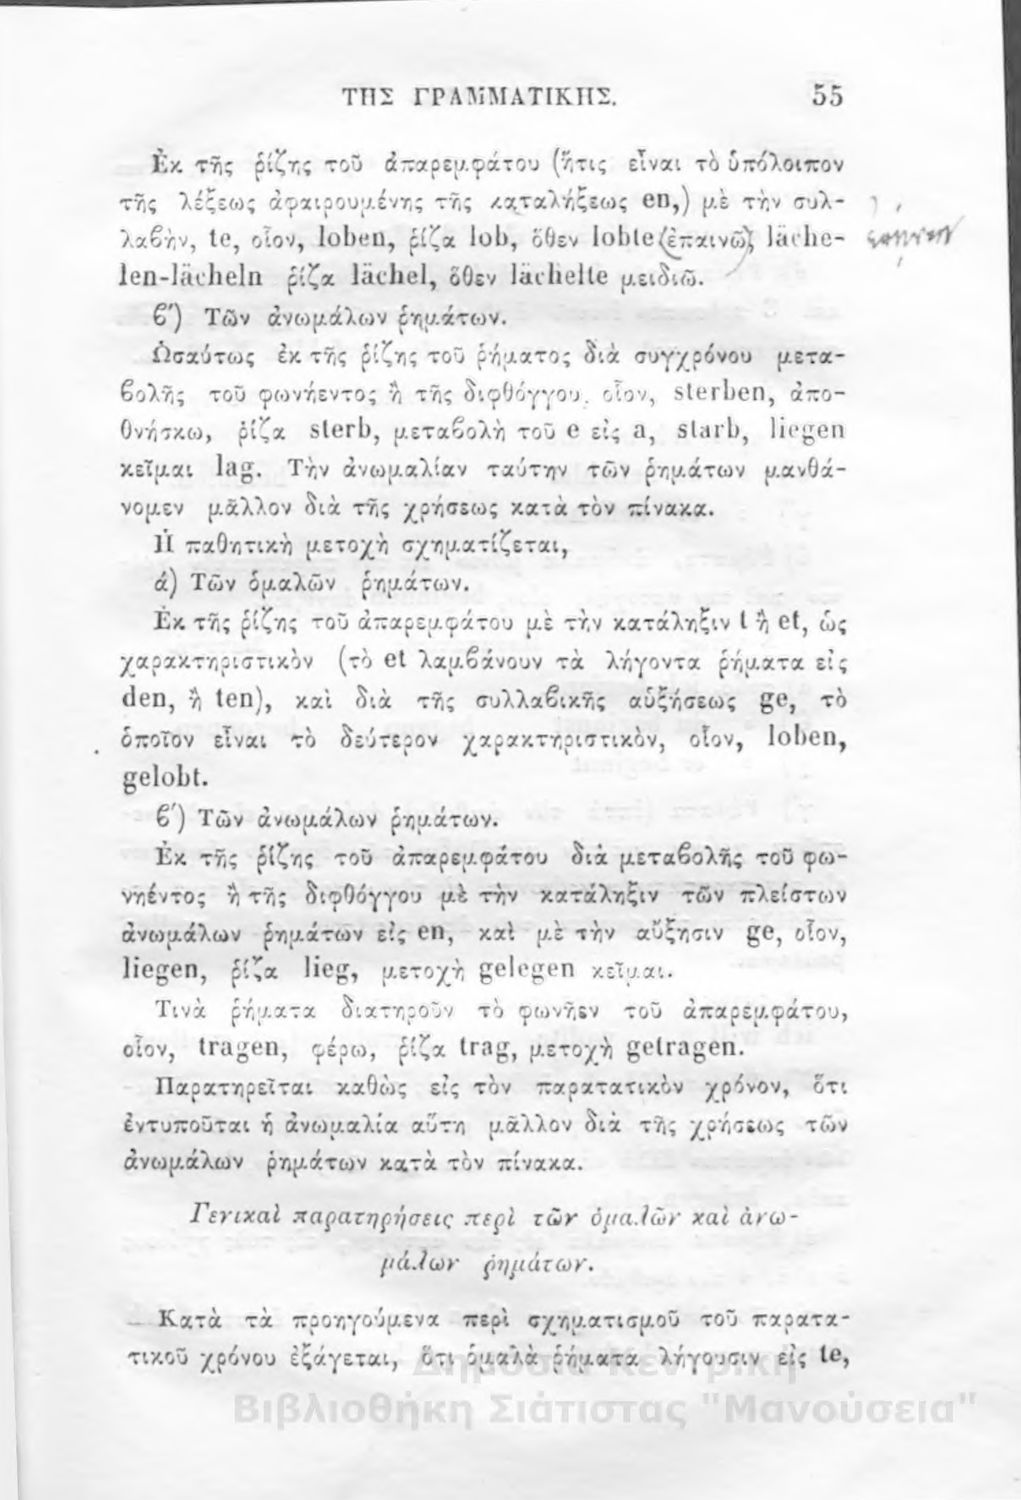 ΤΗΣ ΓΡΑΜΜΑΤΙΚΗΣ. 55
Ἐκ τῆς ῥίζης τοῦ ἀπαρεμφάτου (ἥτις εἶναι τὸ ὑπόλοιπον
τῆς λέξεως ἀφαιρουμένης τῆς καταλήξεως en,) μὲ τὴν συλ-
λαβὴν, te, οἷον, loben, ῥίζα lob, ὅθεν lobte (ἐπαινῶ) läche-
len-lächeln ῥίζα lächel, ὅθεν lächelte μειδιῶ.
β') Τῶν ἀνωμάλων ῥημάτων.
Ὡσαύτως ἐκ τῆς ῥίζης τοῦ ῥήματος διὰ συγχρόνου μετα-
βολῆς τοῦ φωνήεντος ἢ τῆς διφθόγγου, οἷον, sterben, ἀπο-
θνήσκω, ῥίζα sterb, μεταβολὴ τοῦ e εἰς a, starb, liegen
κεῖμαι lag. Τὴν ἀνωμαλίαν ταύτην τῶν ῥημάτων μανθά-
νομεν μᾶλλον διὰ τῆς χρήσεως κατὰ τὸν πίνακα.
Ἡ παθητικὴ μετοχὴ σχηματίζεται,
ά) Τῶν ὁμαλῶν ῥημάτων.
Ἐκ τῆς ῥίζης τοῦ ἀπαρεμφάτου μὲ τὴν κατάληξιν t ἢ et, ὡς
χαρακτηριστικὸν (τὸ et λαμβάνουν τὰ λήγοντα ῥήματα εἰς
den, ἢ ten), καὶ διὰ τῆς συλλαβικῆς αὐξήσεως ge, τὸ
ὁποῖον εἶναι τὸ δεύτερον χαρακτηριστικὸν, οἷον, loben,
gelobt.
β') Τῶν ἀνωμάλων ῥημάτων.
Ἐκ τῆς ῥίζης τοῦ ἀπαρεμφάτου διὰ μεταβολῆς τοῦ φω-
νηέντος ἢ τῆς διφθόγγου μὲ τὴν κατάληξιν τῶν πλείστων
ἀνωμάλων ῥημάτων εἰς en, καὶ μὲ τὴν αὔξησιν ge, οἷον,
liegen, ῥίζα lieg, μετοχὴ gelegen κεῖμαι.
Τινὰ ῥήματα διατηροῦν τὸ φωνῆεν τοῦ ἀπαρεμφάτου,
οἷον, tragen, φέρω, ῥίζα trag, μετοχὴ getragen.
Παρατηρεῖται καθὼς εἰς τὸν παρατατικὸν χρόνον, ὅτι
ἐντυποῦται ἡ ἀνωμαλία αὕτη μᾶλλον διὰ τῆς χρήσεως τῶν
ἀνωμάλων ῥημάτων κατὰ τὸν πίνακα.
Γενικαὶ παρατηρήσεις περὶ τῶν ὁμαλῶν καὶ ἀνω-
μάλων ῥημάτων.
Κατὰ τὰ προηγούμενα περὶ σχηματισμοῦ τοῦ παρατα-
τικοῦ χρόνου ἐξάγεται, ὅτι ὁμαλὰ ῥήματα λήγουσιν εἰς te,
Δημόσια Κεντρική
Βιβλιοθήκη Σιάτιστας "Μανούσεια"